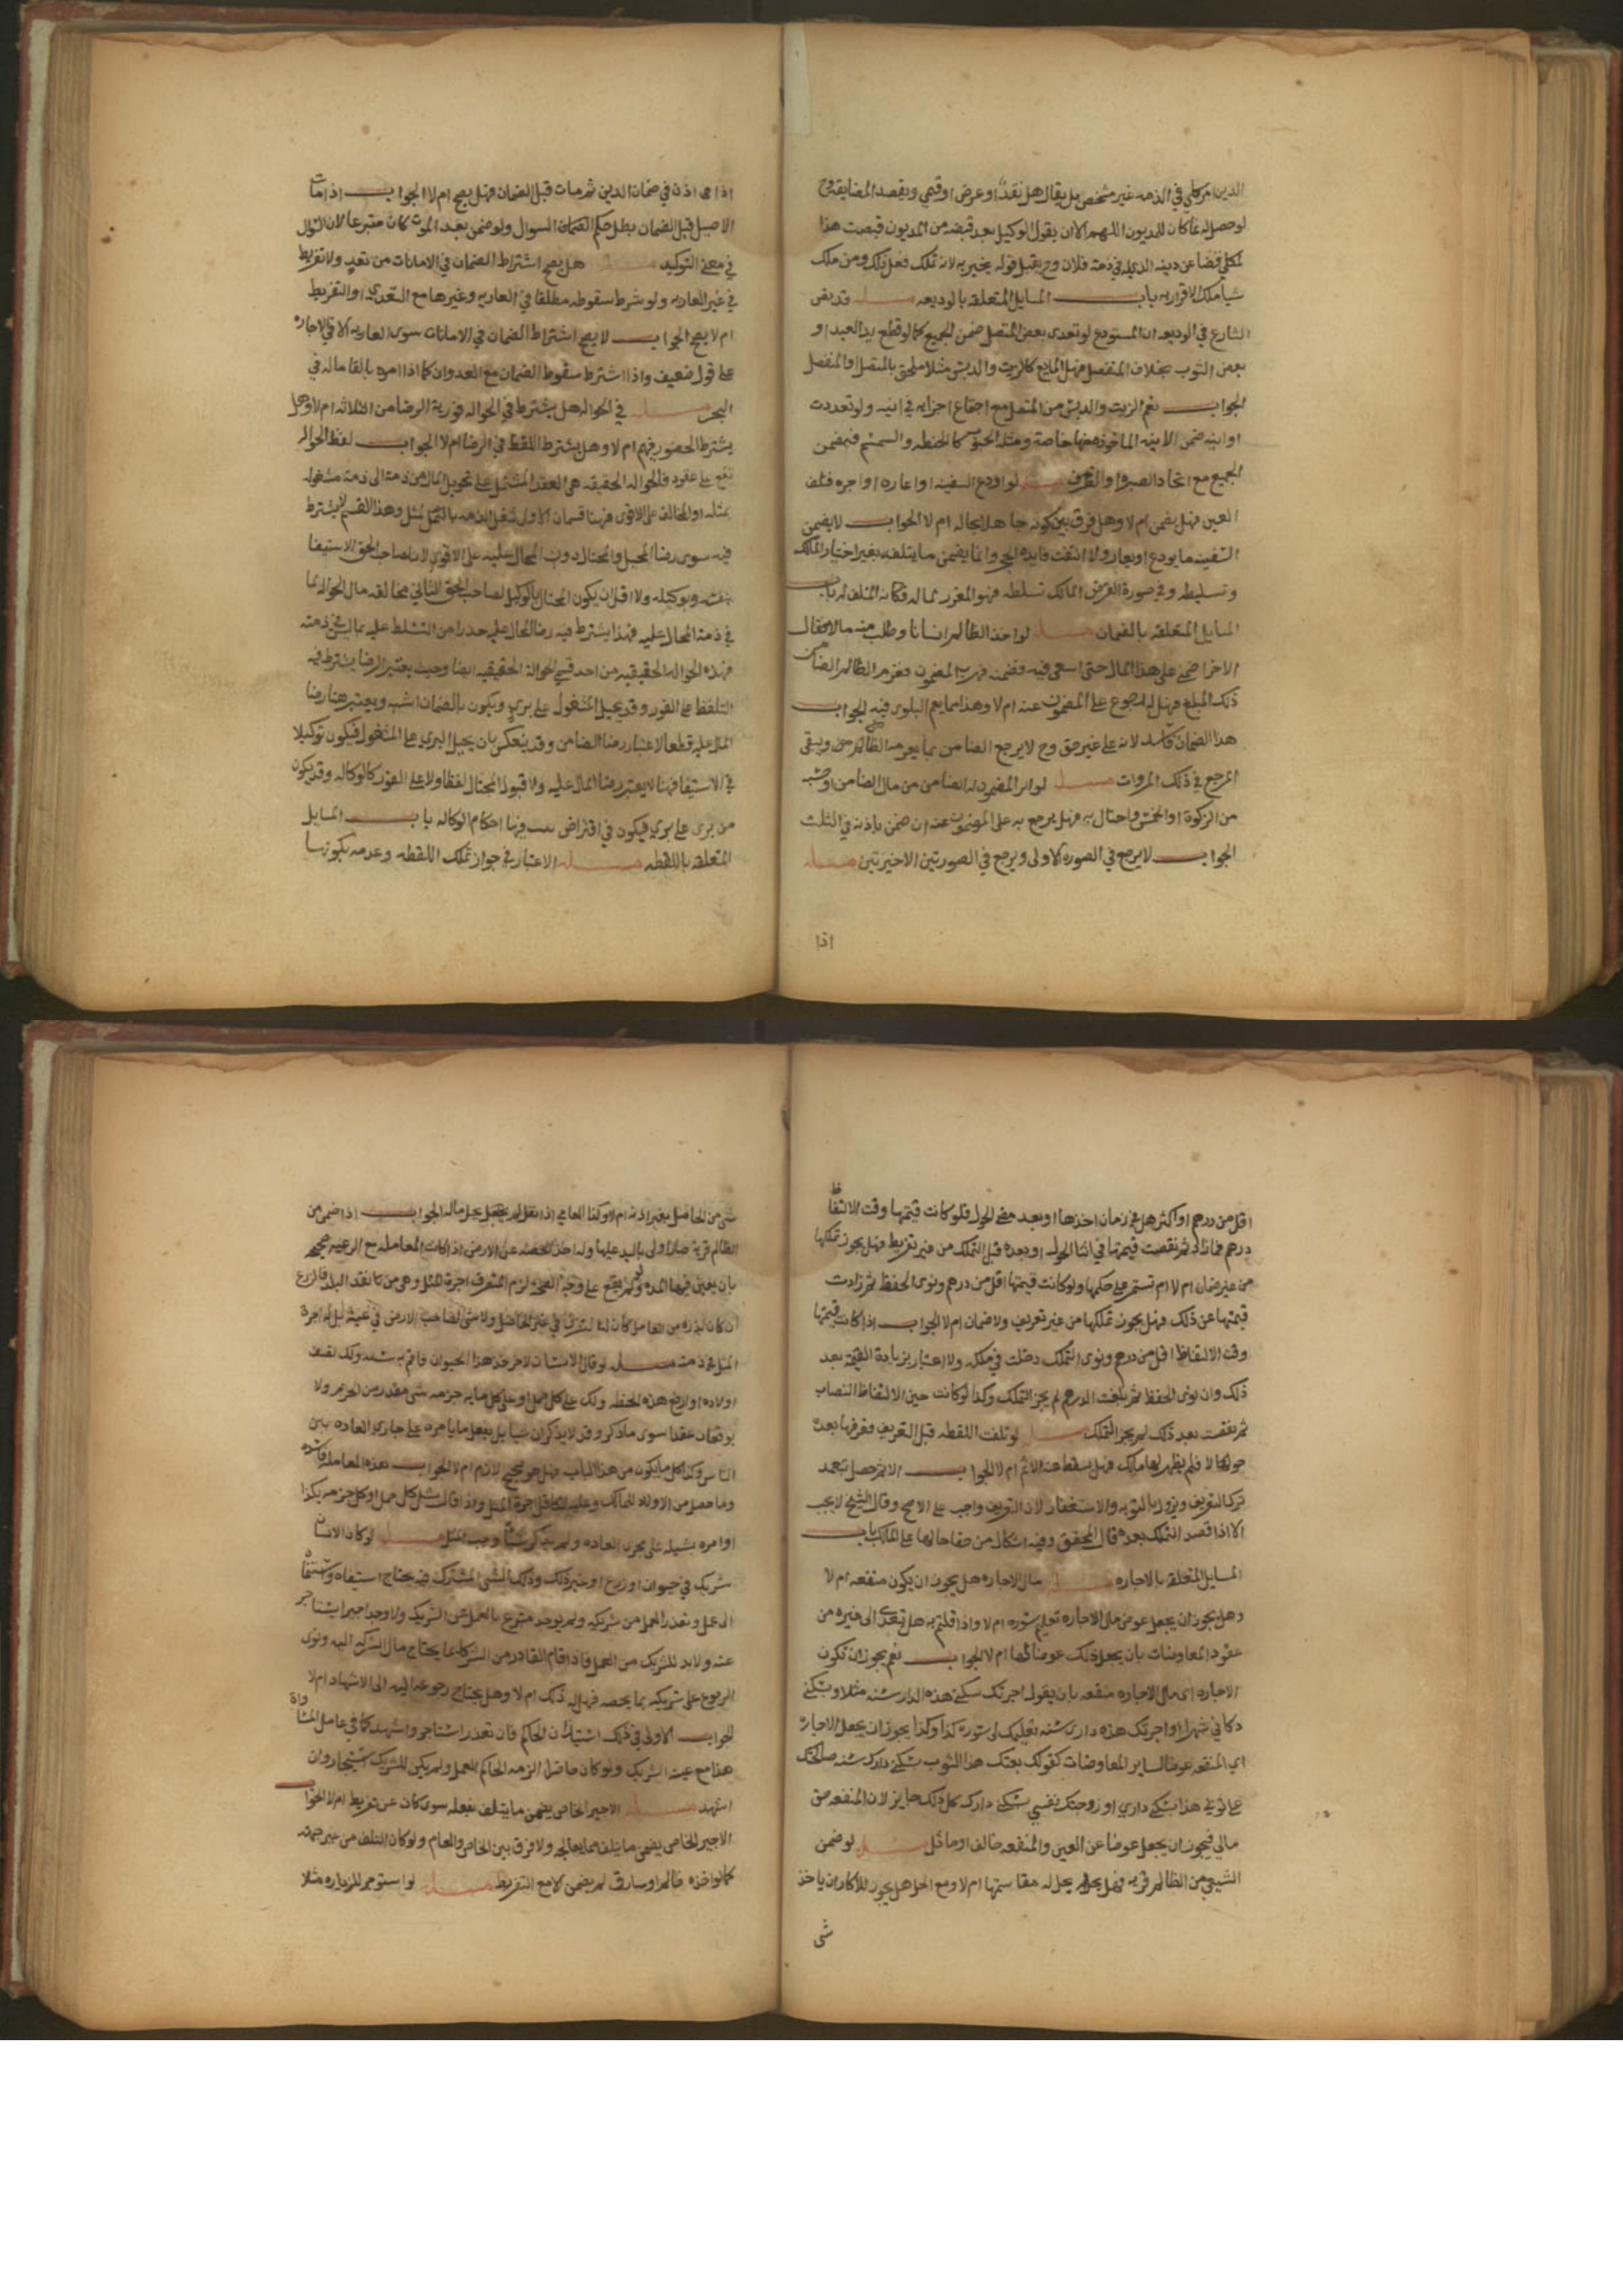 الدين امر كلي في الذمه غير مشخص بل يقال هل نقدا او عرض او قيمي ويقصد المضايقه في
لو حصل له غاكان للمديون اللهم الا ان يقول الوكيل بعد قبضه من المديون قبضت هذا
لموكلي قضا عن دينه الذي له في ذمة فلان وح يقبل قوله يخير به لانه تملك فعل ذلك ومن ملك
شيا ملك الاقرار به باب المسايل المتعلقه بالوديعه مسله قد نص
الشارع في الوديعه ان المستودع لو تعدى بعض المتصل ضمن الجميع كما لو قطع يد العبد او
بعض الثوب بخلاف المنفصل فهل المايع كالزيت والدبس مثلا ملحق بالمتصل او المنفصل
الجواب نعم الزيت والدبس من المتصل مع اجتماع اجزايه في انيه ولو تعددت
اوانيه ضمن الانيه الماخوذ منها خاصة ومثله الحبوب كالحنطه والسمسم فيضمن
الجميع مع اتحاد الصبره او الظرف مسله لو اودع السفيه او اعاره او اجره فتلف
العين فهل يضمن ام لا وهل فرق بين كونه جاهلا بحاله ام لا الجواب لا يضمن
السفيه ما يودع او يعار والا انتفت فايدة الحجر وانما يضمن ما يتلفه بغير اختيار المالك
وتسليطه وفي صورة الفرض المالك تسلطه فهو المغرر بماله فكانه المتلف له باب
المسايل المتعلقه بالضمان مسله لو اخذ الظالم انسانا وطلب منه مالا فقال
الاخر اضمن على هذا المال حتى اسعى فيه وضمنه فهرب المضمون وغرم الظالم الضامن
ذلك المبلغ فهل له الرجوع على المضمون عنه ام لا وهذا مما يعم البلوى فيه الجواب
هذا الضمان فاسد لانه على غير حق وح لا يرجع الضامن بما يغرمه الظالم ويبقى
المرجع في ذلك المروات مسله لو ابرا المضمون له الضامن من مال الضامن او حسبه
من الزكوة او الخمس واحتال به فهل يرجع به على المضمون عنه ان ضمن باذنه في الثلث
الجواب لا يرجع في الصورة الاولى ويرجع في الصورتين الاخيرتين مسله
اذا
اذا اذن في ضمان الدين ثم مات قبل الضمان فهل يصح ام لا الجواب اذا مات
الاصيل قبل الضمان بطل حكم الضمان السوال ولو ضمن بعد الموت كان متبرعا لان السوال
في معنى التوكيد مسله هل يصح اشتراط الضمان في الامانات من تعد ولا تفريط
في غير العاريه ولو شرط سقوطه مطلقا في العاريه وغيرها مع التعدي او التفريط
ام لا يصح الجواب لا يصح اشتراط الضمان في الامانات سوى العاريه الا في الاجاره
على قول ضعيف واذا اشترط سقوط الضمان مع العدوان كما اذا امره بالقا ماله في
البحر مسله في الحواله هل يشترط في الحواله فورية الرضا من الثلاثه ام لا وهل
يشترط الحضور فيهم ام لا وهل يشترط اللفظ في الرضا ام لا الجواب لفظ الحواله
تقع على عقود فالحواله الحقيقيه هي العقد المشتمل على تحويل المال من ذمة الى ذمة مشغوله
بمثله او المخالف على الاقوى فهنا قسمان الاول شغل الذمه بالمثل لمثل وهذا القسم لا يشترط
فيه سوى رضا المحيل والمحتال دون المحال عليه على الاقوى لان لصاحب الحق الاستيفا
بنفسه وبوكيله ولا اقل ان يكون المحتال كالوكيل لصاحب الحق الثاني مخالفه مال الحواله لما
في ذمة المحال عليه فهذا يشترط فيه رضا المحال عليه حذرا من التسلط عليه بما ليس في ذمته
فهذه الحواله الحقيقيه من احد قسمي الحوالة الحقيقيه ايضا وحيث يعتبر الرضا يشترط فيه
التلفظ على الفور وقد يحيل المشغول على بري ويكون بالضمان اشبه ويعتبر هنا رضا
المال عليه قطعا لاعتبار رضا الضامن وقد ينعكس بان يحيل البري على المشغول فيكون توكيلا
في الاستيفا فهنا لا يعتبر رضا المال عليه ولا قبول المحتال لفظا ولا على الفور كالوكاله وقد يكون
من بري على بري فيكون في اقتراض فيها احكام الوكاله باب المسايل
المتعلقه باللقطه مسله الاعتبار في جواز تملك اللقطه وعدمه بكونها
اقل من درهم او اكثر هل في زمان اخذها او بعد مضي الحول فلو كانت قيمتها وقت الالتقاط
درهم فما زاد ثم نقصت قيمتها في اثنا الحول او بعده قبل التملك من غير تفريط فهل يجوز تملكها
من غير ضمان ام لا ام تستمر على حكمها ولو كانت قيمتها اقل من درهم ونوى الحفظ ثم زادت
قيمتها عن ذلك فهل يجوز تملكها من غير تعريف ولا ضمان ام لا الجواب اذا كانت قيمتها
وقت الالتقاط اقل من درهم ونوى التملك دخلت في ملكه ولا اعتبار بزيادة القيمة بعد
ذلك وان نوى الحفظ ثم بلغت الدرهم لم يجز التملك وكذا لو كانت حين الالتقاط النصاب
ثم نقصت بعد ذلك لم يجز التملك مسله لو تلفت اللقطه قبل التعريف وعرفها بعد
حولها لا فلم يظهر لها مالك فهل يسقط عنه الاثم ام لا الجواب الاثم حصل بتعمد
ترك التعريف ويزول بالتوبه والاستغفار لان التعريف واجب على الاصح وقال الشيخ لا يجب
الا اذا قصد التملك بعده قال المحقق وفيه اشكال من خفا حالها على المالك باب
المسايل المتعلقه بالاجاره مسله مال الاجاره هل يجوز ان يكون منفعه ام لا
وهل يجوز ان يجعل عوض مال الاجاره تعليم سوره ام لا واذا قلتم به هل تعدى الى غيره من
عقود المعاوضات بان يجعل ذلك عوضا لها ام لا الجواب نعم يجوز ان تكون
الاجاره اي مال الاجاره منفعه بان يقول اجرتك سكنى هذه الدار سنه مثلا وسكنى
دكاني شهرا او اجرتك هذه داري سنه بتعليمك لي سورة كذا وكذا يجوز ان يجعل الاجارة
اي المنفعه عوضا لساير المعاوضات كقولك بعتك هذا الثوب بسكنى دارك سنه صالحتك
على ثوبي هذا بسكنى داري او زوجتك نفسي بسكنى دارك كل ذلك جايز لان المنفعه حق
مالي فيجوز ان يجعل عوضا عن العين والمنفعه خالف او ماثل مسله لو ضمن
الشيعي من الظالم قريه فهل يحل له مقاسمتها ام لا ومع الحل هل يجوز للاكار ان ياخذ
شي
شي من الحاصل بغير اذنه ام لا وكذا العامي اذا فعل لم يحل ماله الجواب اذا ضمن من
الظالم قرية صار اولى باليد عليها وله اخذ الحصه عن الارض اذا كانت المعامله مع الرعيه صحيحه
بان يعين فيها المده ولو لم يقع على وجه الصحه لزم المتصرف اجرة المثل وهي من نقد البلد فالزرع
ان كان بذره من العامل كان له التصرف في عين الحاصل ولا شي لصاحب الارض في عينه بل له اجرة
المثل في ذمته مسله لو قال الانسان لاخر خذ هذا الحيوان فاقم به سنه ولك نصف
اولاده او ازرع هذه الحنطه ولك على كل حمل او على كل ماية حزمه شي مقدر من الحزم ولا
يوقعان عقدا سوى ما ذكر وقد لا يذكران شيا بل يفعل ما يامره على جاري العاده بين
الناس وكذا كل ما يكون من هذا الباب فهل هو صحيح لازم ام لا الجواب هذه المعامله فاسده
وما حصل من الاولاد للمالك وعليه للكافل اجرة المثل واذا قال شيل كل حمل او كل حزمه بكذا
او امره بشيله على مجرى العاده ولم يذكر شيا وجب المثل مسله لو كان لانسان
شريك في حيوان او زرع او غير ذلك وذلك الشي المشترك فيه يحتاج
الى عمل وتعذر العمل من شريكه ولم يوجد متبرع بالعمل عن الشريك ولا وجد اجير استاجر
عنه ولا بد للشريك من العمل فاذا قام القادر من الشركا بما يحتاج مال الشركه اليه ونوى
الرجوع على شريكه بما يخصه فهل له ذلك ام لا وهل يحتاج رجوعه اليه الى الاشهاد ام لا
الجواب الاولى في ذلك استيذان الحاكم فان تعذر استاجر واشهد كما في عامل المساواة
هذا مع غيبة الشريك ولو كان حاضرا الزمه الحاكم العمل ولم يكن للشريك استيجار وان
اشهد مسله الاجير الخاص يضمن ما يتلف بفعله سوى كان عن تفريط ام لا الجواب
الاجير الخاص يضمن ما يتلف مما يعالجه ولا فرق بين الخاص والعام ولو كان التلف من غير جهته
كما لو اخذه ظالم او سارق لم يضمن الا مع التفريط مسله لو استوجر للزياره مثلا